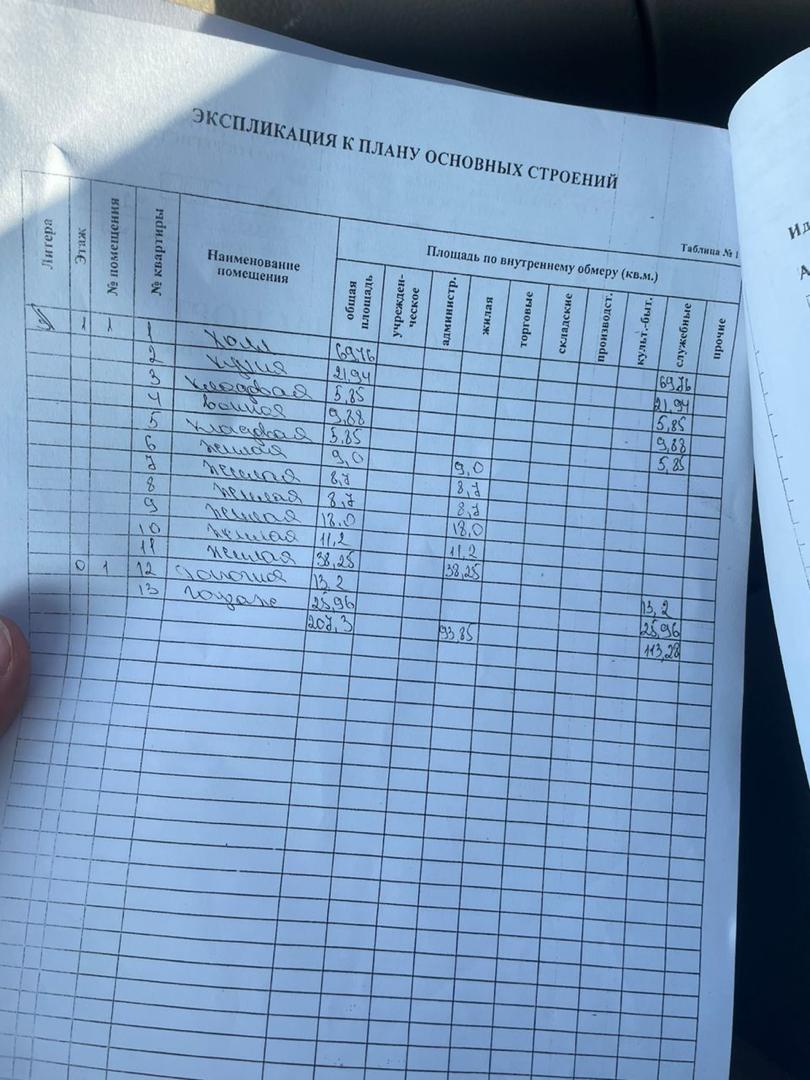 ЭКСПЛИКАЦИЯ К ПЛАНУ ОСНОВНЫХ СТРОЕНИЙ
Таблица № 1
Литера Этаж № помещения № квартиры Наименование помещения Площадь по внутреннему обмеру (кв.м.)
общая площадь учрежден-ческое администр. жилая торговые складские производст. культ.-быт. служебные прочие
1 1 1 холл 69,76 69,76
2 кухня 21,94 21,94
3 кладовая 5,85 5,85
4 ванная 9,88 9,88
5 кладовая 5,85 5,85
6 жилая 9,0 9,0
7 жилая 8,7 8,7
8 жилая 8,7 8,7
9 жилая 18,0 18,0
10 жилая 11,2 11,2
11 жилая 38,25 38,25
0 1 12 13,2 13,2
13 25,96 25,96
207,3 93,85 113,28
Ид
А